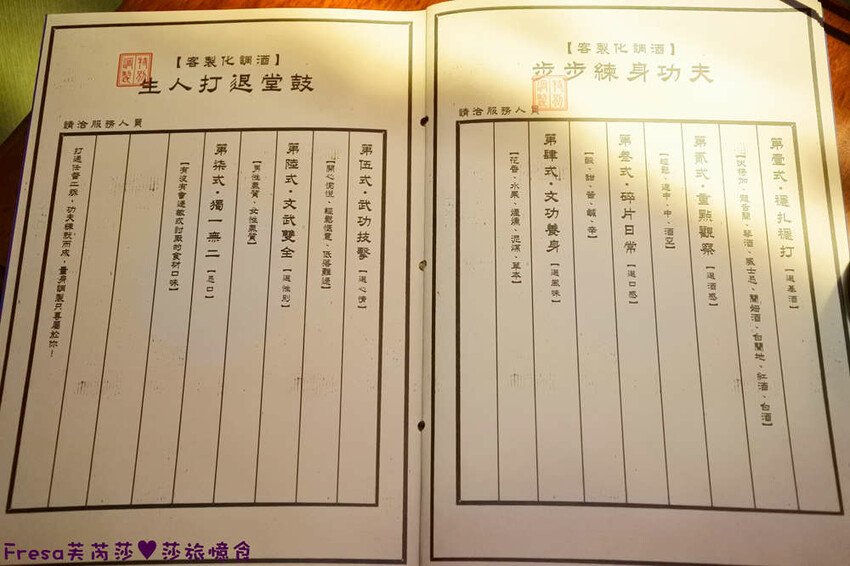 【客製化調酒】
步步練身功夫
特別調製
請洽服務人員
第壹式・穩扎穩打【選基酒】
【伏特加、龍舌蘭、琴酒、威士忌、蘭姆酒、白蘭地、紅酒、白酒】
第貳式・重點觀察【選酒感】
【輕鬆、適中、中、酒
第叁式・碎片日常【選口感】
【酸、甜、苦、鹹、辛】
第肆式・文功養身【選風味】
【花香、水果、煙燻、泥煤、草本】
【客製化調酒】
生人打退堂鼓
特別調製
請洽服務人員
第伍式・武功技擊【選心情】
【開心愉悅、輕鬆愜意、低落難過】
第陸式・文武雙全【選性別】
【男性氣質、女性氣質】
第柒式・獨一無二【忌口】
【有沒有會過敏或討厭的食材口味】
打通任督二脈，功夫練就而成，量身調製只專屬於你！
Fresa芙芮莎♥莎旅憶食